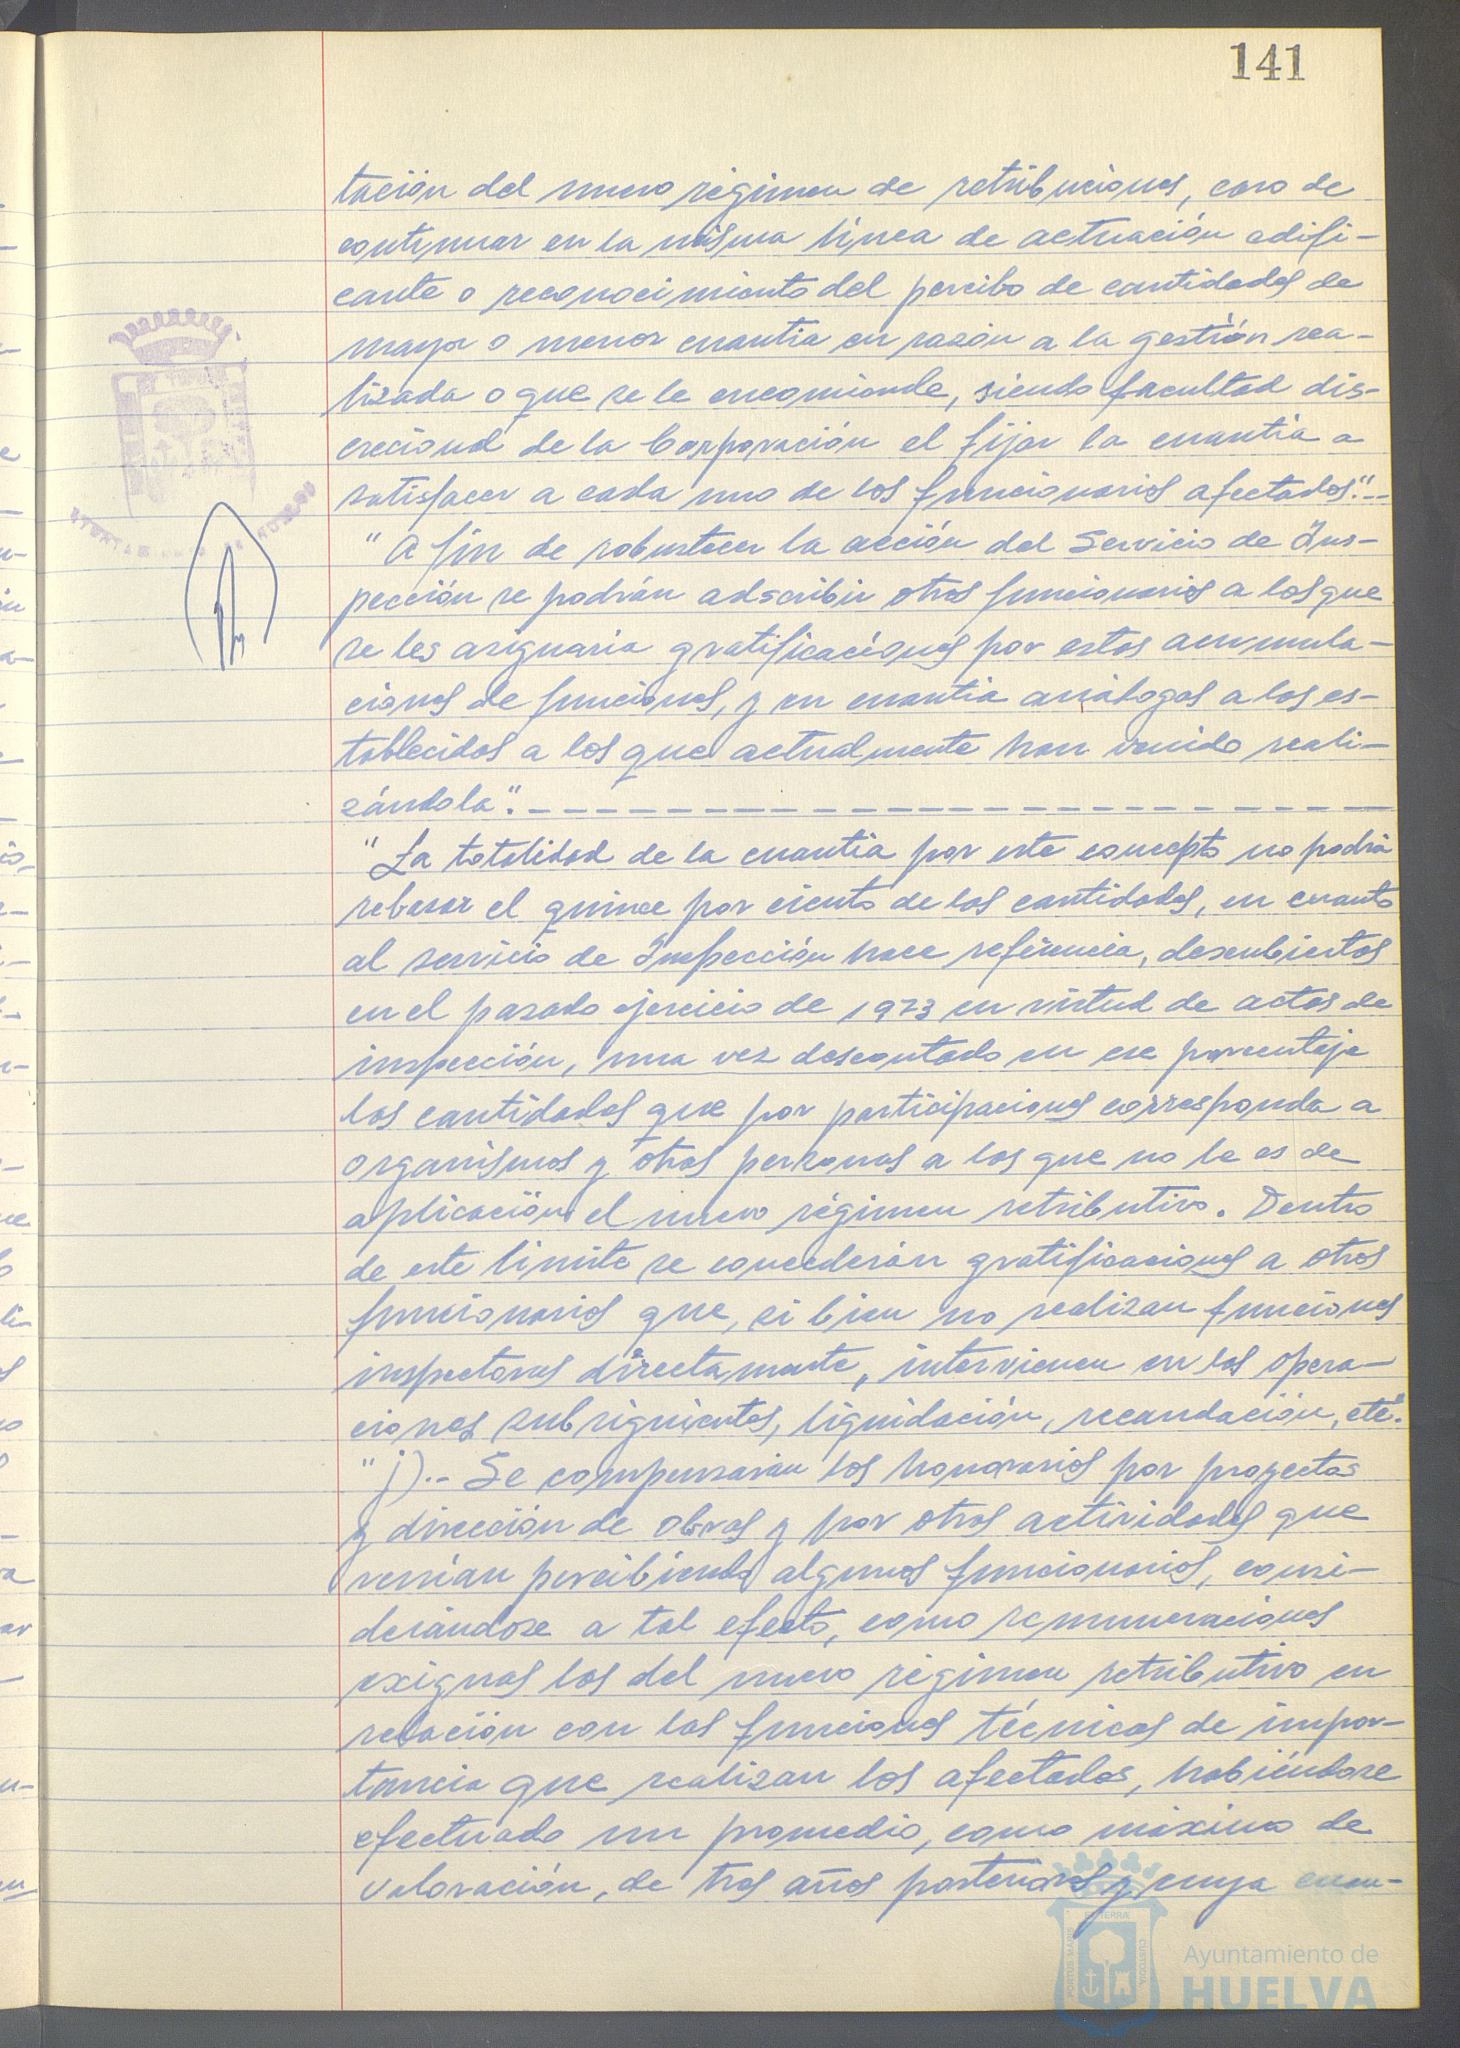 141
tación del nuevo régimen de retribuciones, caso de
continuar en la misma línea de actuación edifi-
cante o reconocimiento del percibo de cantidades de
mayor o menor cuantia en razón a la gestión rea-
lizada o que se le encomiende, siendo facultad dis-
crecional de la Corporación el fijar la cuantía a
satisfacer a cada uno de los funcionarios afectados".-
"A fin de robustecer la acción del Servicio de Ins-
pección se podrán adscribir otros funcionarios a los que
se les asignaria gratificaciones por estas acumula-
ciones de funciones, y en cuantia análogas a los es-
tablecidos a los que actualmente han venido reali-
zándola".- - - - - - - - - - - - - - - - -
"La totalidad de la cuantia por este concepto no podrá
rebasar el quince por ciento de las cantidades, en cuanto
al servicio de Inspección hace referencia, descubiertas
en el pasado ejercicio de 1973 en virtud de actas de
inspección, una vez descontado en ese porcentaje
las cantidades que por participaciones corresponda a
organismos y otras personas a los que no le es de
aplicación el nuevo régimen retributivo. Dentro
de este limite se concederán gratificaciones a otros
funcionarios que, si bien no realizan funciones
inspectoras directamente, intervienen en las opera-
ciones subsiguientes, liquidación, recaudación, etc".
"j).- Se compensarian los honorarios por proyectos
y dirección de obras y por otras actividades que
venían percibiendo algunos funcionarios, consi-
derándose a tal efecto, como remuneraciones
exiguas las del nuevo régimen retributivo en
relación con las funciones técnicas de impor-
tancia que realizan los afectados, habiéndose
efectuado un promedio, como máximo de
valoración, de tres años posteriores y cuya cuan-
PORTUS MARIS
ET TERRAE
CUSTODIA
Ayuntamiento de
HUELVA